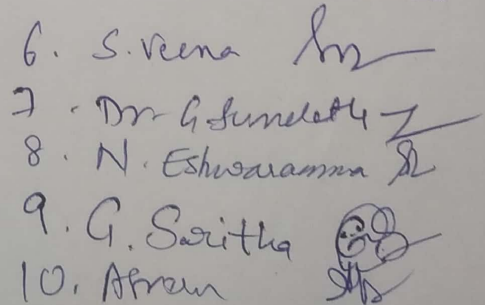 6. S. Veena
7. Dr. G
8. N. Eshwaramma
9. G. Saritha
10. Afreen